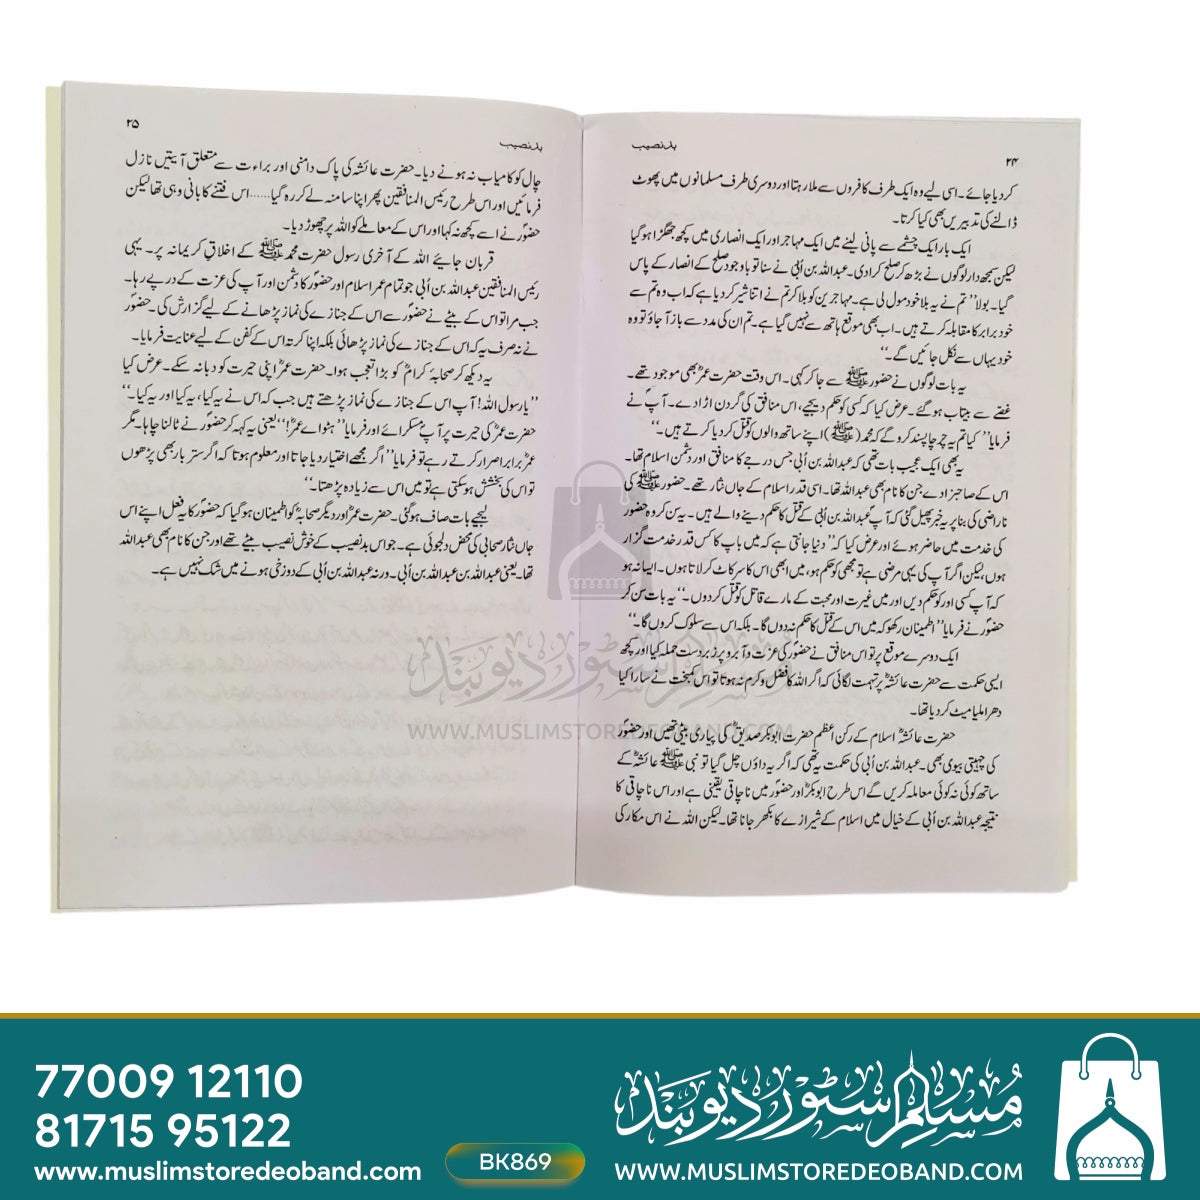 ۲۴
بدنصیب
کر دیا جائے۔ اسی لیے وہ ایک طرف کافروں سے ملا رہتا اور دوسری طرف مسلمانوں میں پھوٹ
ڈالنے کی تدبیریں بھی کیا کرتا۔
ایک بار ایک چشمے سے پانی لینے میں ایک مہاجر اور ایک انصاری میں کچھ جھگڑا ہو گیا
لیکن سمجھ دار لوگوں نے بڑھ کر صلح کرا دی۔ عبداللہ بن اُبی نے سنا تو باوجود صلح کے انصار کے پاس
گیا۔ بولا ”تم نے یہ بلا خود مول لی ہے۔ مہاجرین کو بلا کر تم نے اتنا شیر کر دیا ہے کہ اب وہ تم سے
خود برابر کا مقابلہ کرتے ہیں۔ اب بھی موقع ہاتھ سے نہیں گیا ہے۔ تم ان کی مدد سے باز آ جاؤ تو وہ
خود یہاں سے نکل جائیں گے۔“
یہ بات لوگوں نے حضور ﷺ سے جا کر کہی۔ اس وقت حضرت عمرؓ بھی موجود تھے۔
غصے سے بیتاب ہو گئے۔ عرض کیا کہ کسی کو حکم دیجیے، اس منافق کی گردن اڑا دے۔ آپؐ نے
فرمایا ”کیا تم یہ چرچا پسند کرو گے کہ محمد (ﷺ) اپنے ساتھ والوں کو قتل کر دیا کرتے ہیں۔“
یہ بھی ایک عجیب بات تھی کہ عبداللہ بن اُبی جس درجے کا منافق اور دشمن اسلام تھا۔
اس کے صاحبزادے جن کا نام بھی عبداللہ تھا۔ اسی قدر اسلام کے جاں نثار تھے۔ حضور ﷺ کی
ناراضی کی بنا پر یہ خبر پھیل گئی کہ آپؐ عبداللہ بن اُبی کے قتل کا حکم دینے والے ہیں۔ یہ سن کر وہ حضور
کی خدمت میں حاضر ہوئے اور عرض کیا کہ ”دنیا جانتی ہے کہ میں باپ کا کس قدر خدمت گزار
ہوں، لیکن اگر آپ کی یہی مرضی ہے تو مجھی کو حکم ہو، میں ابھی اس کا سر کاٹ کر لاتا ہوں۔ ایسا نہ ہو
کہ آپ کسی اور کو حکم دیں اور میں غیرت اور محبت کے مارے قاتل کو قتل کر دوں۔“ یہ بات سن کر
حضورؐ نے فرمایا ”اطمینان رکھو کہ میں اس کے قتل کا حکم نہ دوں گا۔ بلکہ اس سے سلوک کروں گا۔“
ایک دوسرے موقع پر تو اس منافق نے حضورؐ کی عزت و آبرو پر زبردست حملہ کیا اور کچھ
ایسی حکمت سے حضرت عائشہؓ پر تہمت لگائی کہ اگر اللہ کا فضل و کرم نہ ہوتا تو اس کمبخت نے سارا کیا
دھرا ملیامیٹ کر دیا تھا۔
حضرت عائشہؓ اسلام کے رکن اعظم حضرت ابوبکر صدیقؓ کی پیاری بیٹی تھیں اور حضورؐ
کی چہیتی بیوی بھی۔ عبداللہ بن اُبی کی حکمت یہ تھی کہ اگر یہ داؤں چل گیا تو نبی ﷺ عائشہؓ کے
ساتھ کوئی نہ کوئی معاملہ کریں گے اس طرح ابوبکرؓ اور حضورؐ میں ناچاقی یقینی ہے اور اس ناچاقی کا
نتیجہ عبداللہ بن اُبی کے خیال میں اسلام کے شیرازے کا بکھر جانا تھا۔ لیکن اللہ نے اس مکار کی
۲۵
بدنصیب
چال کو کامیاب نہ ہونے دیا۔ حضرت عائشہؓ کی پاک دامنی اور براءت سے متعلق آیتیں نازل
فرمائیں اور اس طرح رئیس المنافقین پھر اپنا سا منہ لے کر رہ گیا...... اس فتنے کا بانی وہی تھا لیکن
حضورؐ نے اسے کچھ نہ کہا اور اس کے معاملے کو اللہ پر چھوڑ دیا۔
قربان جایئے اللہ کے آخری رسول حضرت محمد ﷺ کے اخلاقِ کریمانہ پر۔ یہی
رئیس المنافقین عبداللہ بن اُبی جو تمام عمر اسلام اور حضورؐ کا دشمن اور آپ کی عزت کے درپے رہا۔
جب مرا تو اس کے بیٹے نے حضورؐ سے اس کے جنازے کی نماز پڑھانے کے لیے گزارش کی۔ حضورؐ
نے نہ صرف یہ کہ اس کے جنازے کی نماز پڑھائی بلکہ اپنا کرتہ اس کے کفن کے لیے عنایت فرمایا۔
یہ دیکھ کر صحابۂ کرامؓ کو بڑا تعجب ہوا۔ حضرت عمرؓ اپنی حیرت کو دبا نہ سکے۔ عرض کیا
”یا رسول اللہ! آپ اس کے جنازے کی نماز پڑھتے ہیں جب کہ اس نے یہ کیا، یہ کیا اور یہ کیا۔“
حضرت عمرؓ کی حیرت پر آپؐ مسکرائے اور فرمایا ”ہٹو اے عمرؓ!“ یعنی یہ کہہ کر حضورؐ نے ٹالنا چاہا۔ مگر
عمرؓ برابر اصرار کرتے رہے تو فرمایا ”اگر مجھے اختیار دیا جاتا اور معلوم ہوتا کہ اگر ستر بار بھی پڑھوں
تو اس کی بخشش ہو سکتی ہے تو میں اس سے زیادہ پڑھتا۔“
لیجیے بات صاف ہو گئی۔ حضرت عمرؓ اور دیگر صحابہؓ کو اطمینان ہو گیا کہ حضورؐ کا یہ فعل اپنے اس
جاں نثار صحابی کی محض دلجوئی ہے۔ جو اس بدنصیب کے خوش نصیب بیٹے تھے اور جن کا نام بھی عبداللہ
تھا۔ یعنی عبداللہ بن عبداللہ بن اُبی۔ ورنہ عبداللہ بن اُبی کے دوزخی ہونے میں شک نہیں ہے۔
مسلم سٹور دیوبند
WWW.MUSLIMSTOREDEOBAND.COM
77009 12110
81715 95122
www.muslimstoredeoband.com
BK869
مسلم سٹور دیوبند
WWW.MUSLIMSTOREDEOBAND.COM